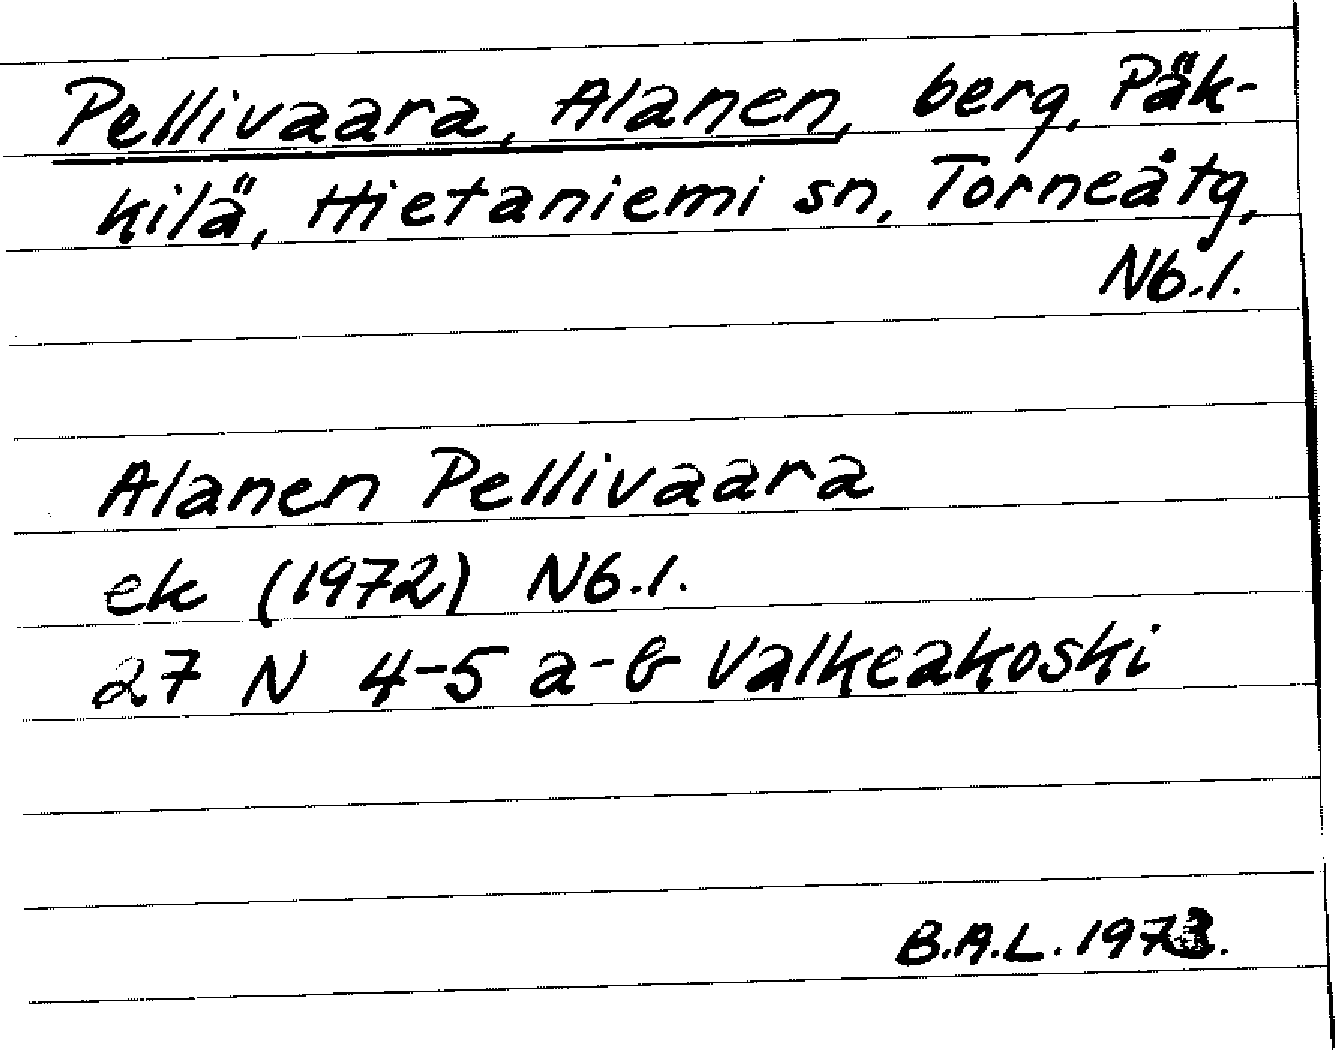 Pellivaara, Alanen, berg, Päk-
kilä, Hietaniemi sn, Torneåtg,
Nb.l.
Alanen Pellivaara
ek (1972) Nb.l.
27 N 4-5 a-b Valkeakoski
B.A.L. 1973.